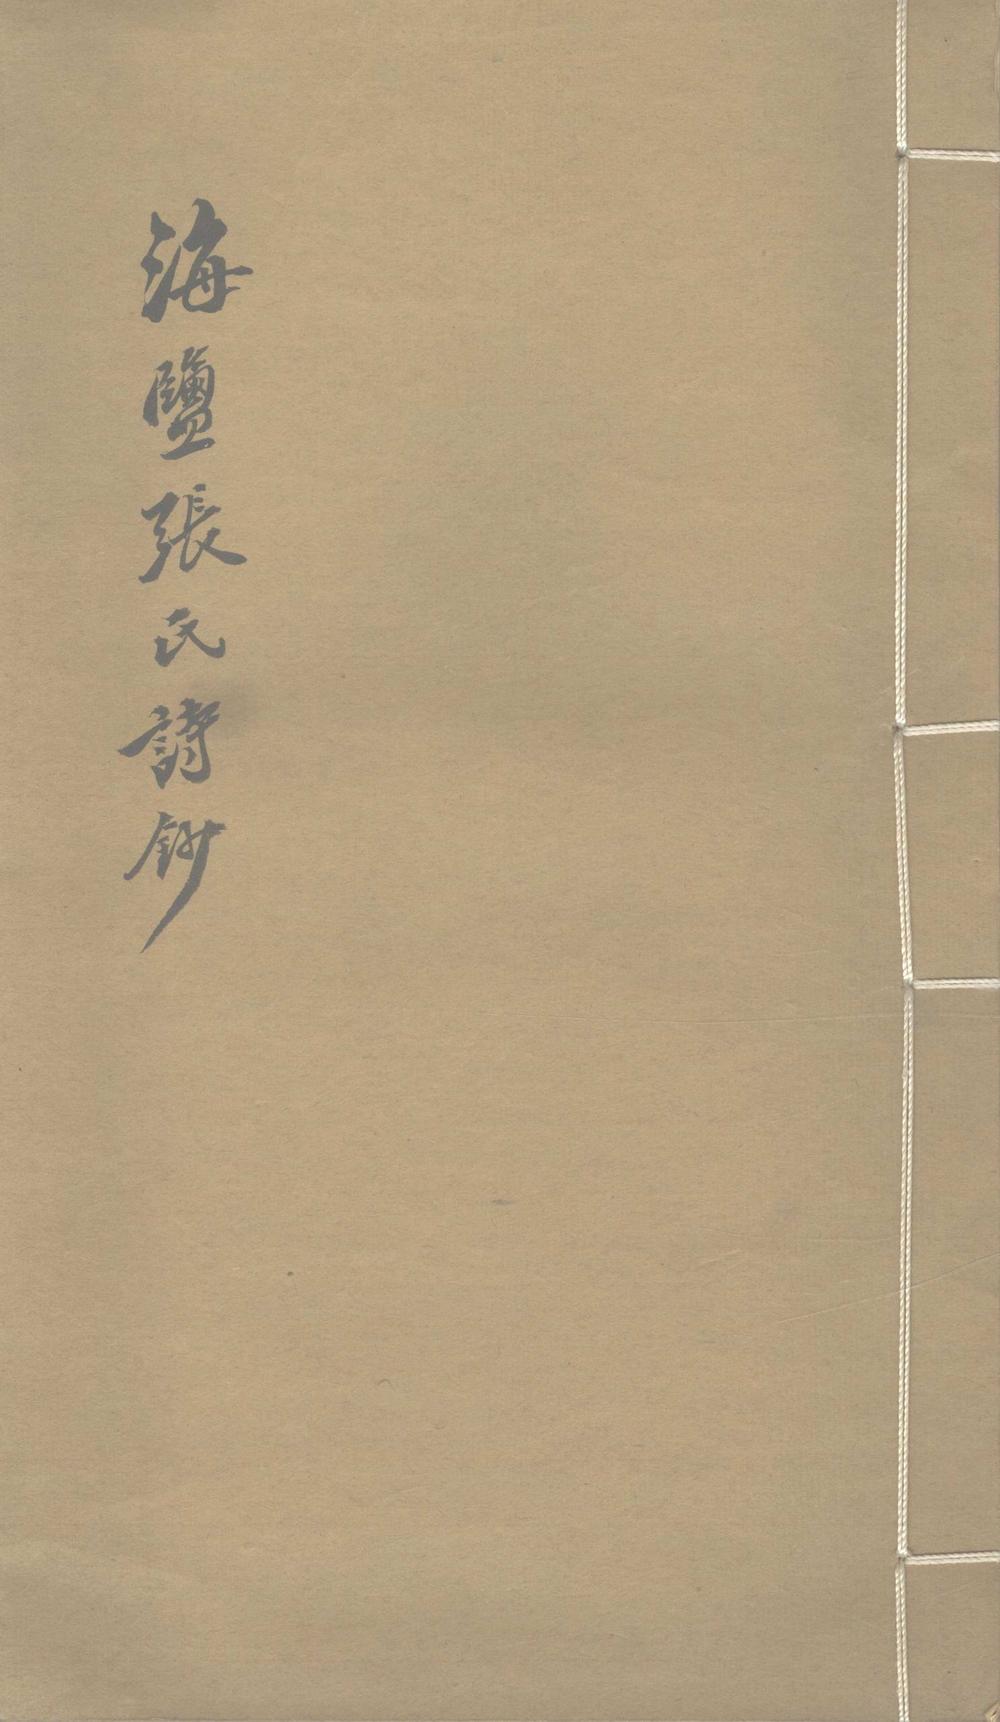 海鹽張氏詩鈔